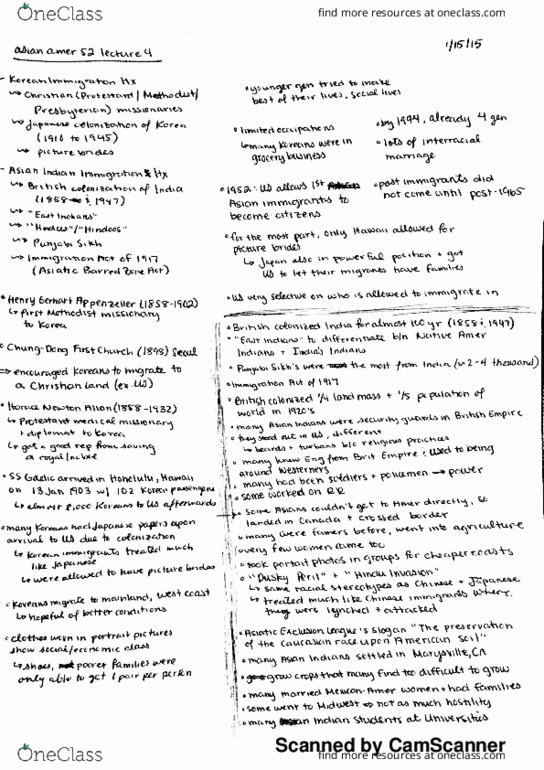 OneClass
find more resources at oneclass.com
asian amer 52 lecture 4
1/15/15
- Korean Immigration Hx
↳ Christian (Protestant / Methodist/
Presbyterian) missionaries
↳ Japanese colonization of Korea
(1910 to 1945)
↳ picture brides
- Asian Indian Immigration Hx
↳ British colonization of India
(1858 - 1947)
↳ "East Indians"
↳ "Hindus"/"Hindoos"
↳ Punjabi Sikh
↳ Immigration Act of 1917
(Asiatic Barred Zone Act)
• Henry Gerhart Appenzeller (1858-1902)
↳ first Methodist missionary
to Korea
• Chung-Dong First Church (1898) Seoul
⇒ encouraged Koreans to migrate to
a Christian land (ex US)
• Horace Newton Allen (1858-1932)
↳ Protestant medical missionary
+ diplomat to Korea
↳ got a good rep from saving
a royal
• SS Gaelic arrived in Honolulu, Hawaii
on 13 Jan 1903 w/ 102 Korean passengers
↳ almost 8,000 Koreans to US afterwards
• many Koreans had Japanese papers upon
arrival to US due to colonization
↳ Korean immigrants treated much
like Japanese
↳ were allowed to have picture brides
• Koreans migrate to mainland, west coast
↳ hopeful of better conditions
• clothes worn in portrait pictures
show social/economic class
↳ shoes, poorer families were
only able to get 1 pair per person
• younger gen tried to make
best of their lives, social lives
• limited occupations
↳ many Koreans were in
grocery business
• by 1994, already 4 gen
• lots of interracial
marriage
• 1952: US allows 1st
Asian immigrants to
become citizens
• post immigrants did
not come until post-1965
• for the most part, only Hawaii allowed for
picture brides
↳ Japan also in powerful position + got
US to let their migrants have families
• US very selective on who is allowed to immigrate in
• British colonized India for almost 100 yr (1858-1947)
• "East Indians" to differentiate b/n Native Amer
Indians + India's Indians
• Punjabi Sikh's were the most from India (~2-4 thousand)
• Immigration Act of 1917
• British colonized 1/4 land mass + 1/5 population of
world in 1920's
• many Asian Indians were security guards in British Empire
• they stood out in US, different
↳ beards + turbans b/c religious practices
• many knew Eng from Brit Empire & used to being
around Westerners
• many had been soldiers + policemen → power
• some worked on RR
• some Asians couldn't get to Amer directly, so
landed in Canada + crossed border
• many were famers before, went into agriculture
• very few women came too
• took portrait photos in groups for cheaper costs
• "Dusky Peril" + "Hindu Invasion"
↳ same racial stereotypes as Chinese + Japanese
↳ treated much like Chinese immigrants where
they were lynched + attacked
• Asiatic Exclusion League's slogan "The preservation
of the caucasian race upon American soil"
• many Asian Indians settled in Marysville, CA
• grow crops that many find too difficult to grow
• many married Mexican-Amer women + had families
• some went to Midwest ⇒ not as much hostility
• many Indian students at Universities
Scanned by CamScanner
OneClass
find more resources at oneclass.com